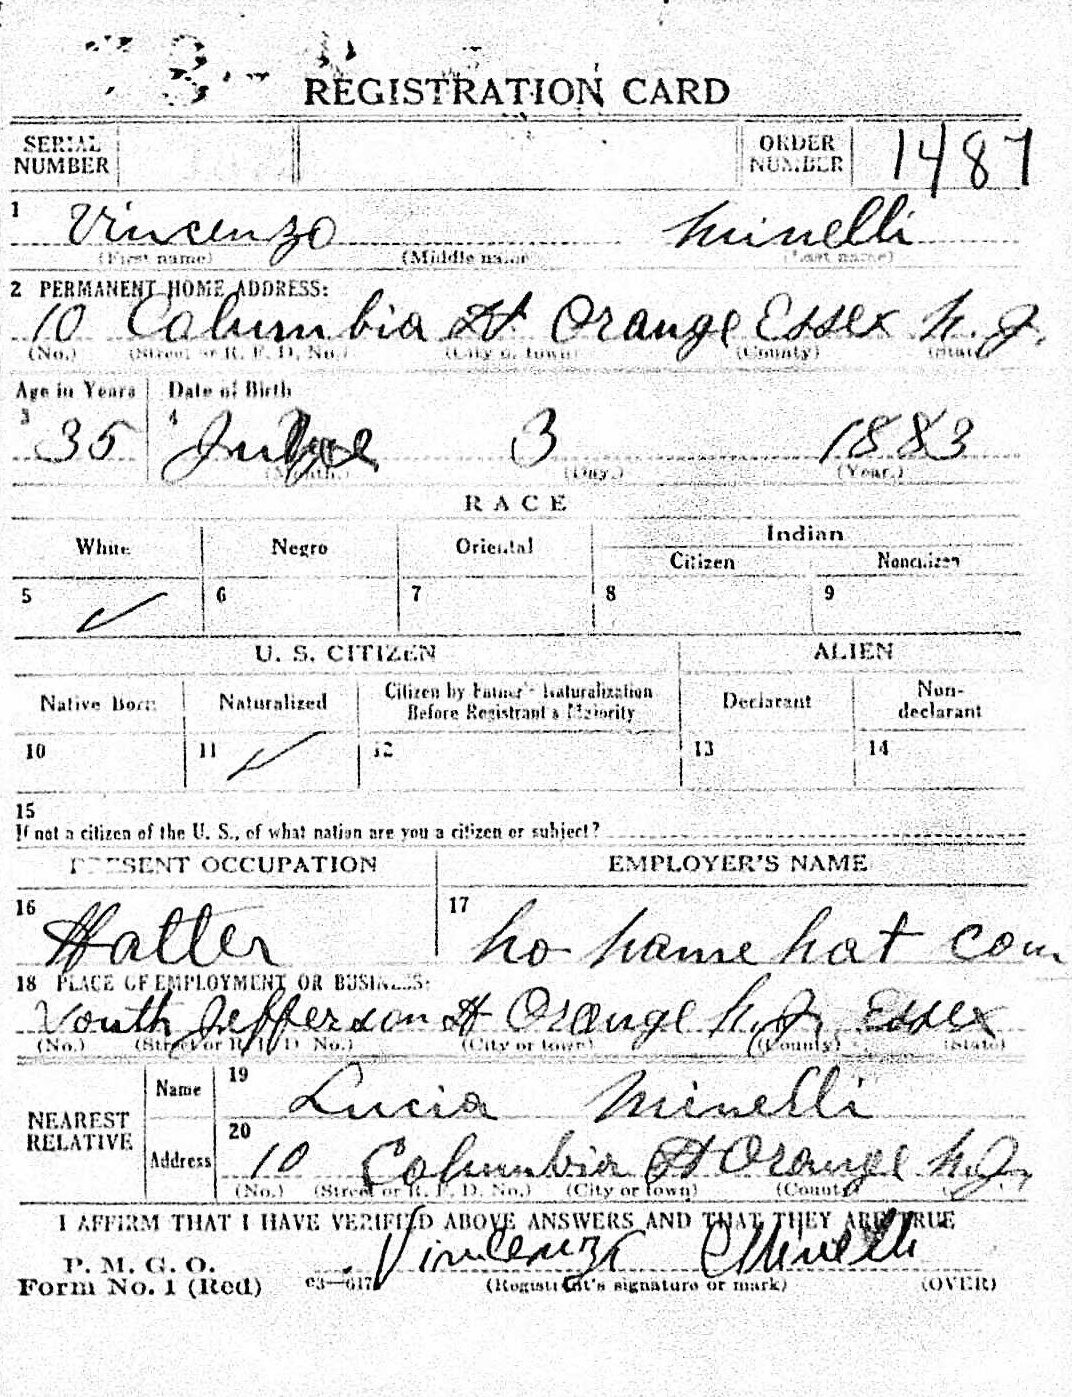 REGISTRATION CARD
SERIAL NUMBER ORDER NUMBER 1487
1 Vincenzo Minelli
(First name) (Middle name (Last name)
2 PERMANENT HOME ADDRESS:
10 Columbia St Orange Essex N. J.
(No.) (Street or R. F. D. No.) (City or town) (County) (State)
Age in Years Date of Birth
3 35 4 3 1883
(Month.) (Day.) (Year.)
RACE
White Negro Oriental Indian
Citizen Noncitizen
5 ✓ 6 7 8 9
U. S. CITIZEN ALIEN
Native Born Naturalized Citizen by Father's Naturalization Before Registrant's Majority Declarant Non-declarant
10 11 ✓ 12 13 14
15
If not a citizen of the U. S., of what nation are you a citizen or subject?
PRESENT OCCUPATION EMPLOYER'S NAME
16 Hatter 17 No name hat com
18 PLACE OF EMPLOYMENT OR BUSINESS:
Jefferson St Orange N. J. Essex
(No.) (Street or R. F. D. No.) (City or town) (County) (State)
NEAREST RELATIVE Name 19 Lucia Minelli
Address 20 10 Columbia St Orange N. J.
(No.) (Street or R. F. D. No.) (City or town) (County)
I AFFIRM THAT I HAVE VERIFIED ABOVE ANSWERS AND THAT THEY ARE TRUE
P. M. G. O.
Form No. 1 (Red) 03—617 Vincenzo Minelli
(Registrant's signature or mark) (OVER)